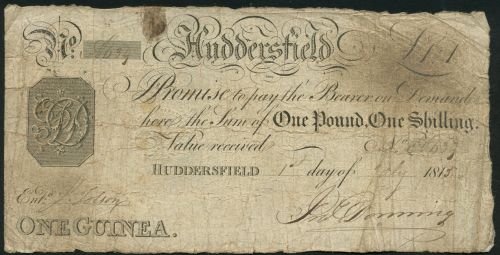 No. Huddersfield £1,,1
I Promise to pay the Bearer on Demand
here the Sum of One Pound, One Shilling.
Value received No
HUDDERSFIELD 1st day of July 1815
Entd.
ONE GUINEA.